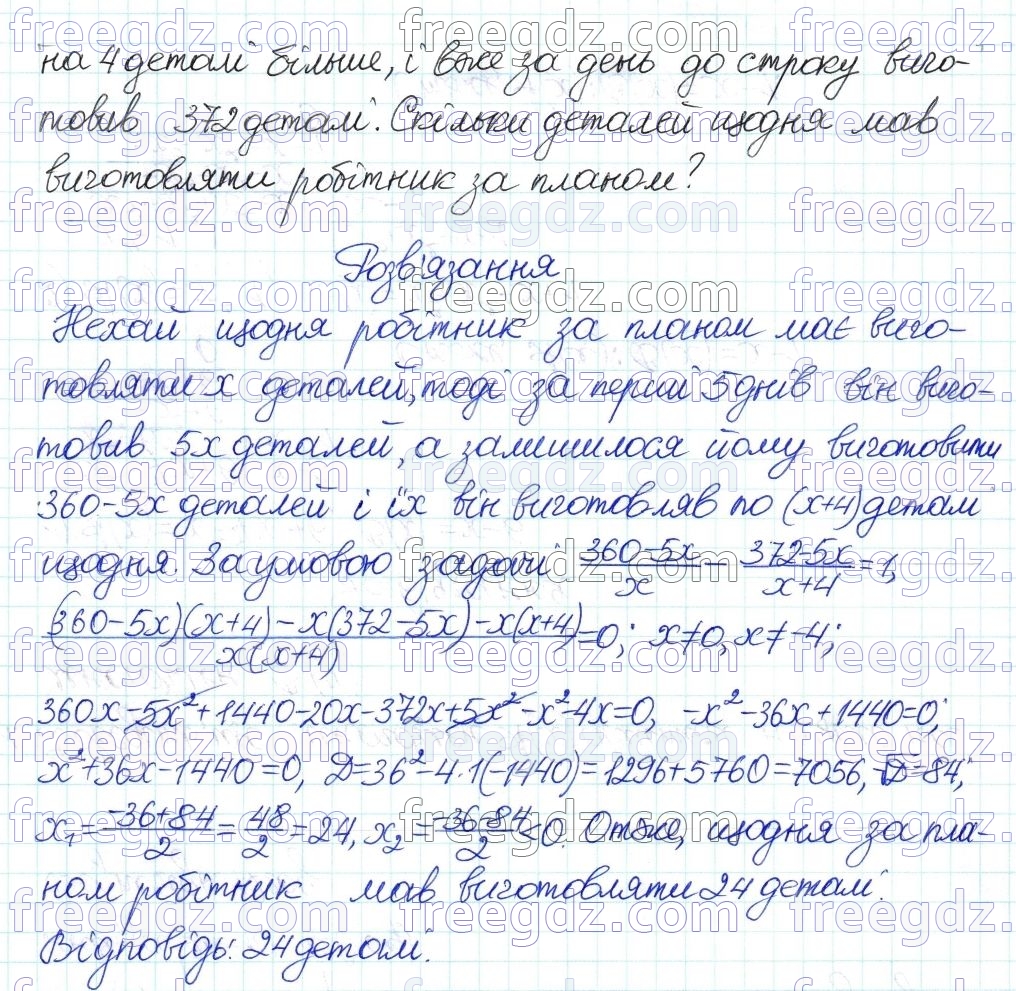 на 4 деталі більше, і вже за день до строку виго-
товив 372 деталі. Скільки деталей щодня мав
виготовляти робітник за планом?
Розв'язання
Нехай щодня робітник за планом має виго-
товляти x деталей, тоді за перші 5 днів він виго-
товив 5x деталей, а залишилося йому виготовити
360-5x деталей і їх він виготовляв по (x+4) деталі
щодня. За умовою задачі (360-5x)/x - (372-5x)/(x+4) = 1,
((360-5x)(x+4)-x(372-5x)-x(x+4))/(x(x+4)) = 0; x≠0, x≠-4;
360x-5x²+1440-20x-372x+5x²-x²-4x=0, -x²-36x+1440=0;
x²+36x-1440=0, D=36²-4·1(-1440)=1296+5760=7056, √D=84;
x₁=(-36+84)/2=48/2=24, x₂=(-36-84)/2<0. Отже, щодня за пла-
ном робітник мав виготовляти 24 деталі.
Відповідь: 24 деталі.
freegdz.com